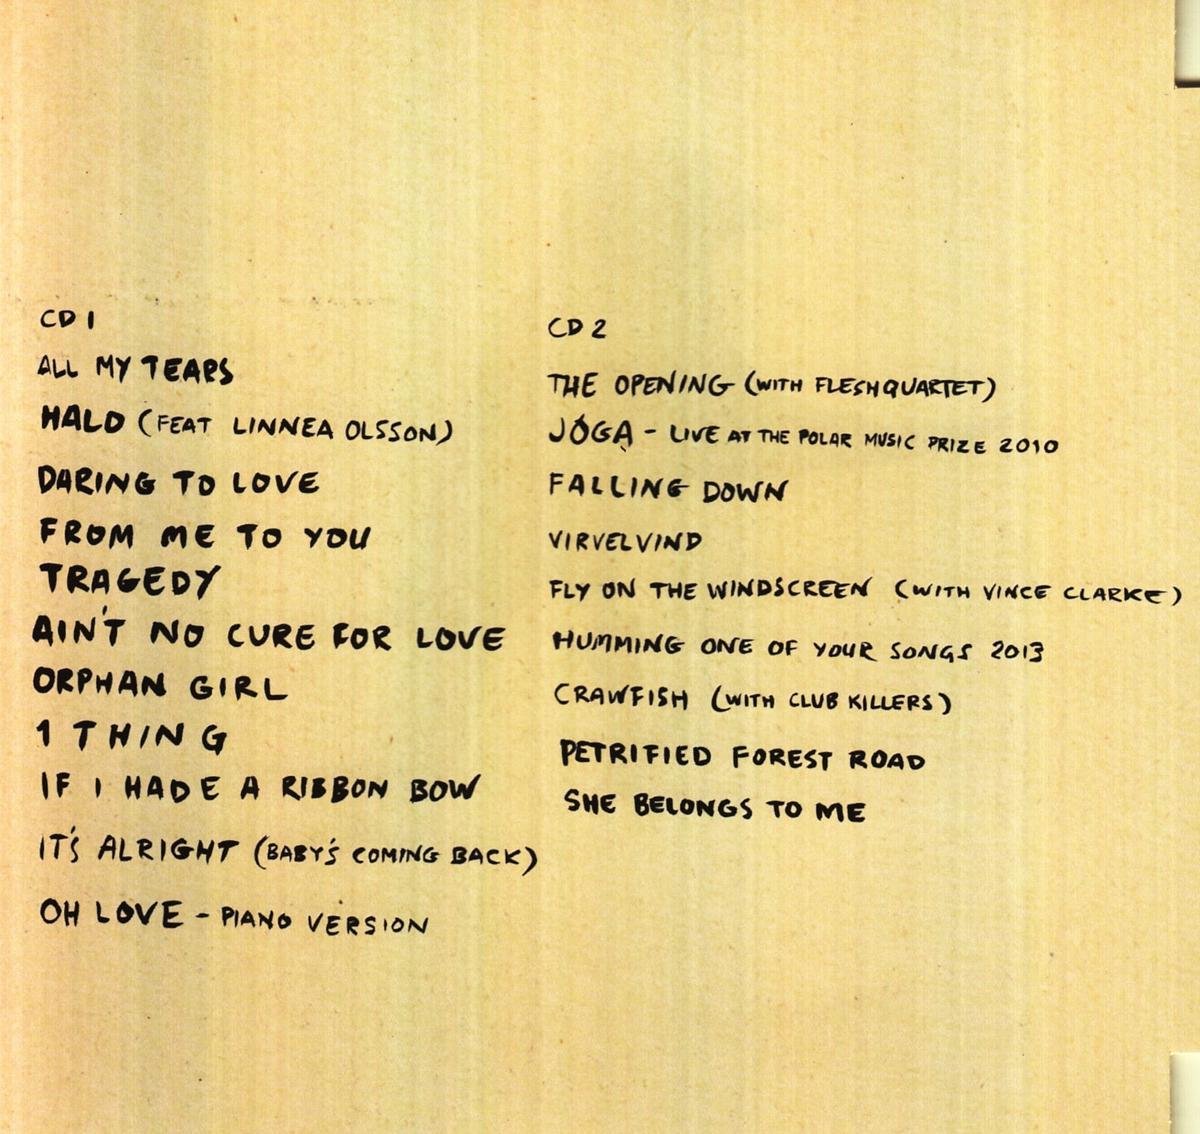 CD 1
ALL MY TEARS
HALO (FEAT LINNEA OLSSON)
DARING TO LOVE
FROM ME TO YOU
TRAGEDY
AIN'T NO CURE FOR LOVE
ORPHAN GIRL
1 THING
IF I HADE A RIBBON BOW
IT'S ALRIGHT (BABY'S COMING BACK)
OH LOVE - PIANO VERSION
CD 2
THE OPENING (WITH FLESHQUARTET)
JÓGA - LIVE AT THE POLAR MUSIC PRIZE 2010
FALLING DOWN
VIRVELVIND
FLY ON THE WINDSCREEN (WITH VINCE CLARKE)
HUMMING ONE OF YOUR SONGS 2013
CRAWFISH (WITH CLUB KILLERS)
PETRIFIED FOREST ROAD
SHE BELONGS TO ME